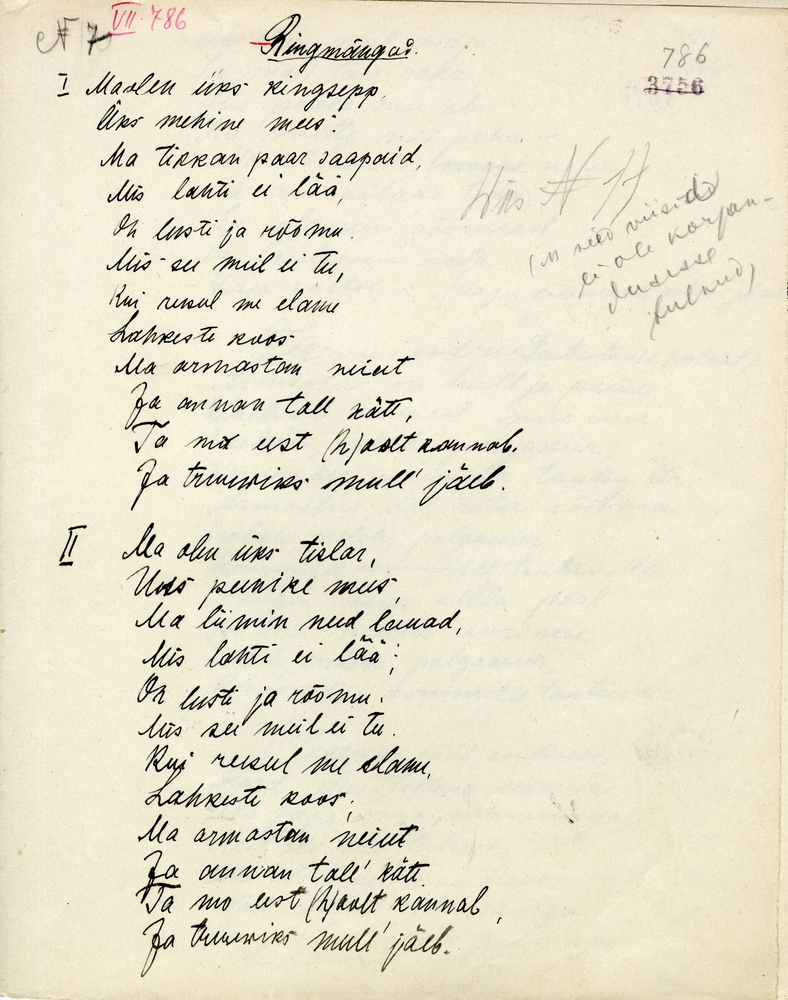 N 7
VII. 786
Ringmängud.
786
3756
I Ma olen üks kingsepp,
Üks mehine mees:
Ma tikkan paar saapaid,
Mis lahti ei lää,
Oh lusti ja rõõmu.
Mis see meil ei tee,
Kui reisul me elame
Lahkeste koos
Ma armastan neiut
Ja annan tall kätt,
Ta mo eest (h)oolt kannab.
Ja truuwiks mull' jäeb.
Viis N 17
(M need viisid
ei ole korjan-
dusesse
tulnud)
II Ma olen üks tislar,
Üks peenike mees,
Ma liimin need lauad,
Mis lahti ei lää;
Oh lusti ja rõõmu.
Mis see meil ei tee.
Kui reisul me elame,
Lahkeste koos,
Ma armastan neiut
Ja annan tall' kätt
Ta mo eest (h)oolt kannab,
Ja truuwiks mull' jäeb.